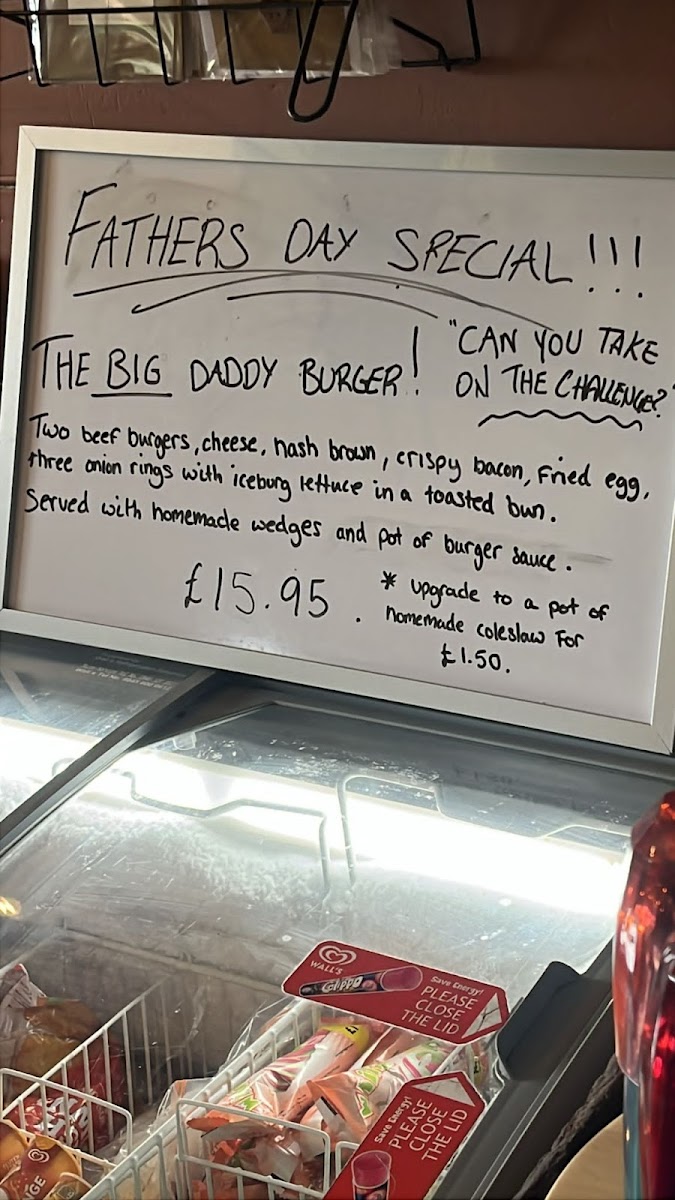 FATHERS DAY SPECIAL!!!
THE BIG DADDY BURGER!
"CAN YOU TAKE
ON THE CHALLENGE?"
Two beef burgers, cheese, hash brown, crispy bacon, fried egg,
three onion rings with iceburg lettuce in a toasted bun.
Served with homemade wedges and pot of burger sauce.
£15.95.
* upgrade to a pot of
homemade coleslaw for
£1.50.
WALL'S
Calippo
Save Energy!
PLEASE
CLOSE
THE LID
Save Energy!
PLEASE
CLOSE
THE LID